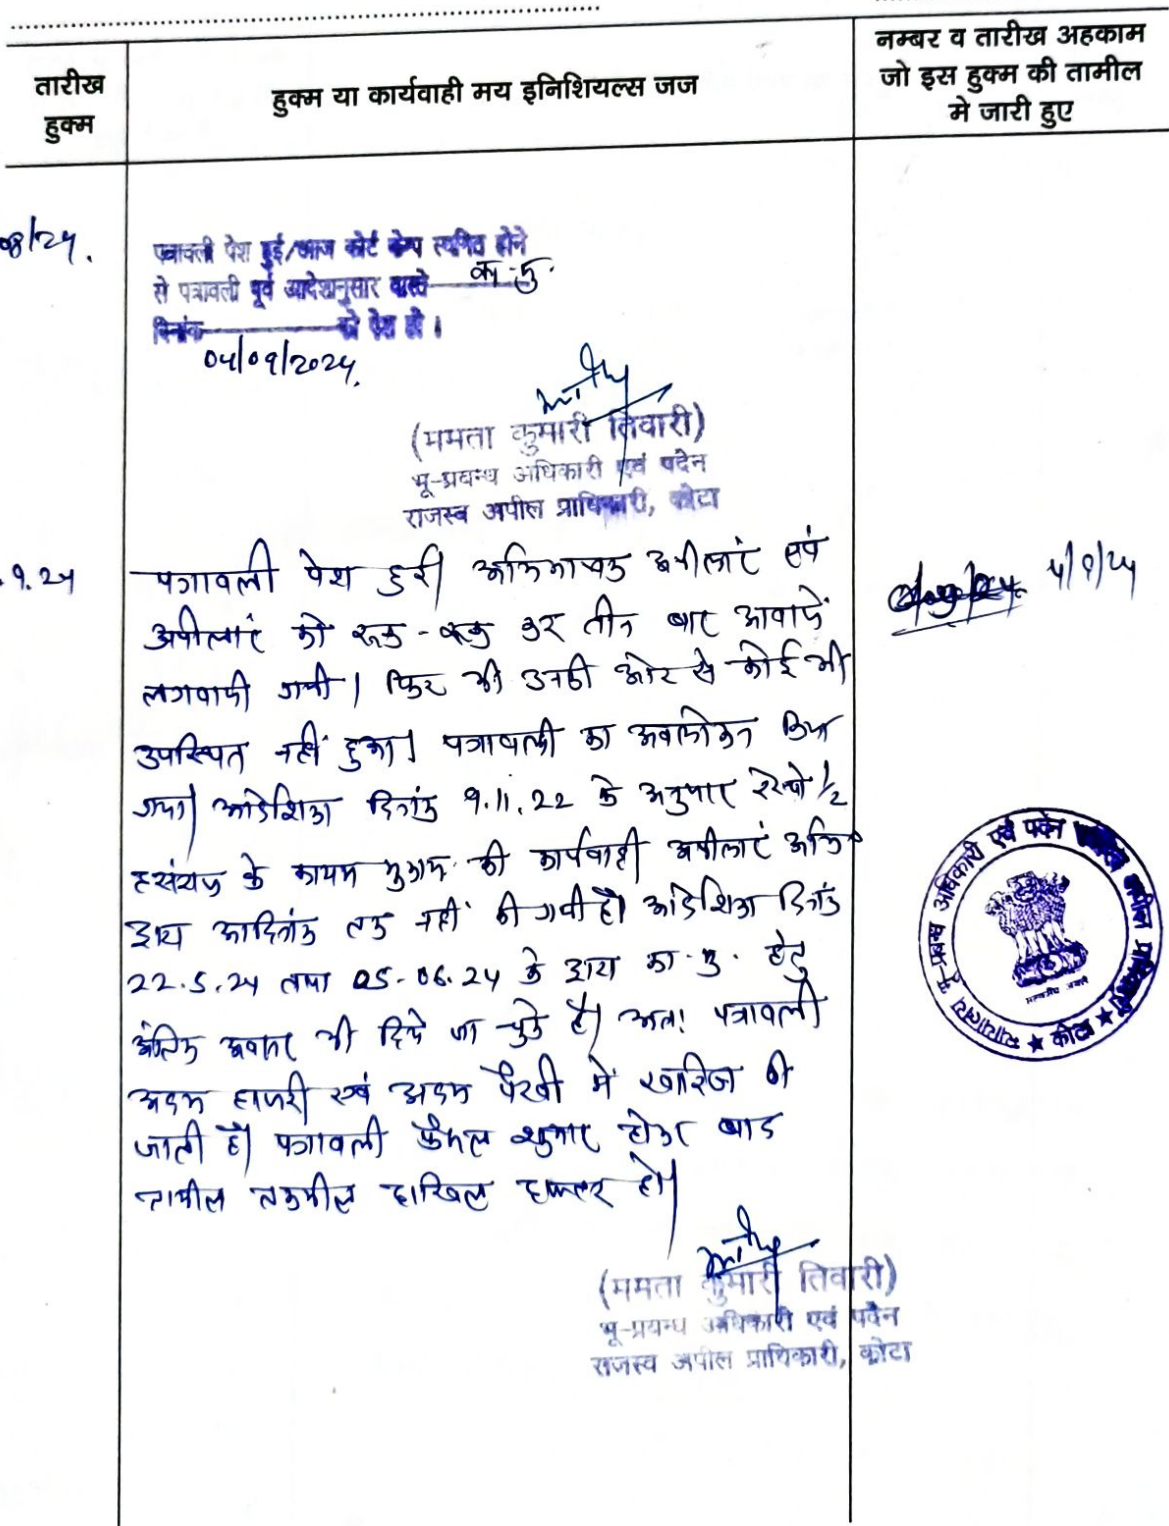 तारीख
हुक्म
हुक्म या कार्यवाही मय इनिशियल्स जज
नम्बर व तारीख अहकाम
जो इस हुक्म की तामील
मे जारी हुए
08/24.
पत्रावली पेश हुई/आज कोर्ट केम्प स्थगित होने
से पत्रावली पूर्व आदेशानुसार वास्ते का.मु.
दिनांक को पेश हो।
04/09/2024.
(ममता कुमारी तिवारी)
भू-प्रबन्ध अधिकारी एवं पदेन
राजस्व अपील प्राधिकारी, कोटा
.9.24
4/9/24
पत्रावली पेश हुई। अभिभाषक अपीलांट एवं
अपीलांट को रूक-रूक कर तीन बार आवाजें
लगवायी गयी। फिर भी उनकी ओर से कोई भी
उपस्थित नहीं हुआ। पत्रावली का अवलोकन किया
गया। आदेशिका दिनांक 9.11.22 के अनुसार रेस्पो 1/2
के कायम मुकाम की कार्यवाही अपीलांट अभि०
द्वारा आदिनांक तक नहीं की गयी है। आदेशिका दिनांक
22.5.24 तथा 05-06.24 के द्वारा का.मु. हेतु
अंतिम अवसर भी दिये जा चुके है। अतः पत्रावली
अदम हाजरी एवं अदम पैरवी में खारिज की
जाती है। पत्रावली फैसल शुमार होकर बाद
तामील तकमील दाखिल दफ्तर हो।
(ममता कुमारी तिवारी)
भू-प्रबन्ध अधिकारी एवं पदेन
राजस्व अपील प्राधिकारी, कोटा
न्यायालय भू-प्रबन्ध अधिकारी एवं पदेन राजस्व अपील प्राधिकारी ★ कोटा ★